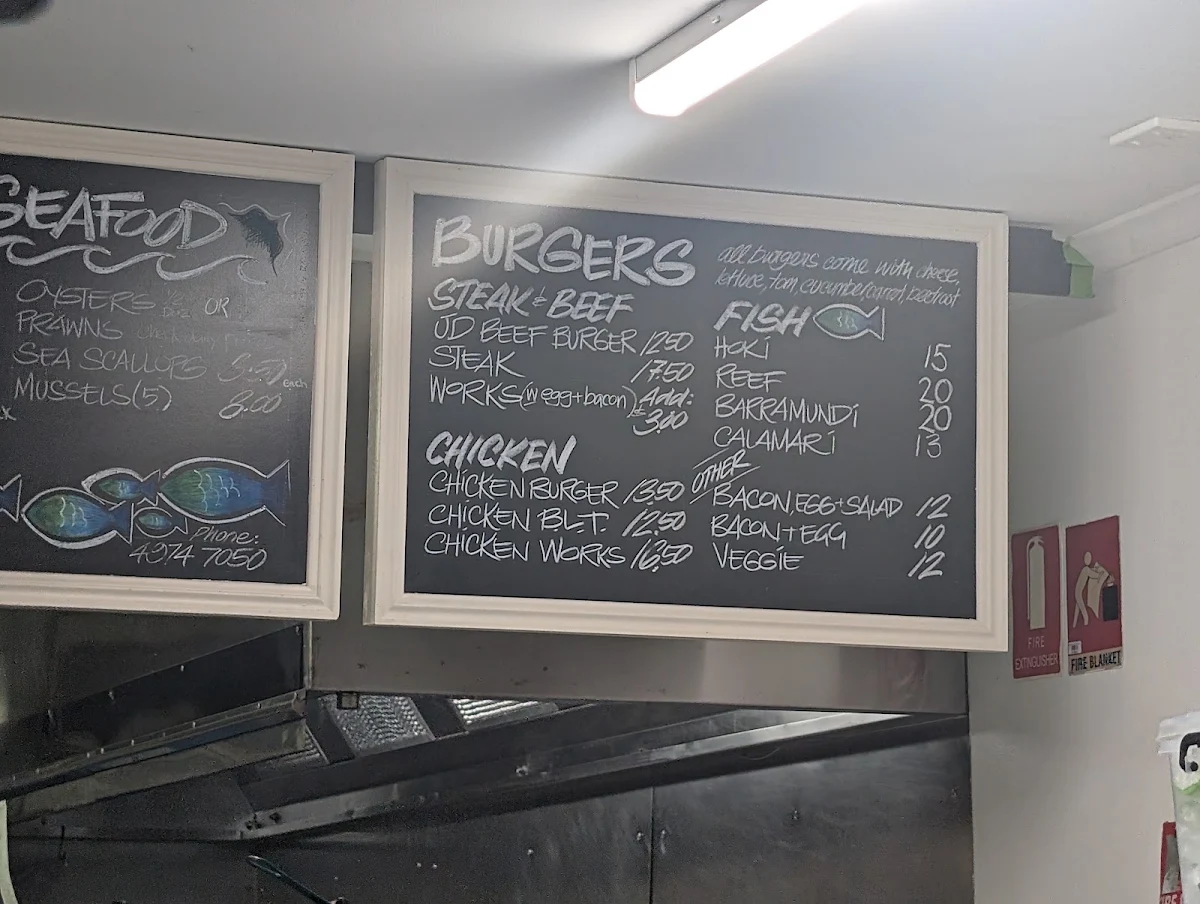 SEAFOOD
OYSTERS OR
PRAWNS
SEA SCALLOPS each
MUSSELS(5) 8.00
Phone:
4974 7050
BURGERS
all burgers come with cheese,
lettuce, tom, cucumber, carrot, beetroot
STEAK & BEEF
JD BEEF BURGER 12.50
STEAK 17.50
WORKS (w egg+bacon) Add:
3.00
CHICKEN
CHICKEN BURGER 13.50
CHICKEN BLT. 12.50
CHICKEN WORKS 16.50
FISH
HOKI 15
REEF 20
BARRAMUNDI 20
CALAMARI 13
OTHER
BACON, EGG + SALAD 12
BACON + EGG 10
VEGGIE 12
FIRE
EXTINGUISHER
FIRE BLANKET